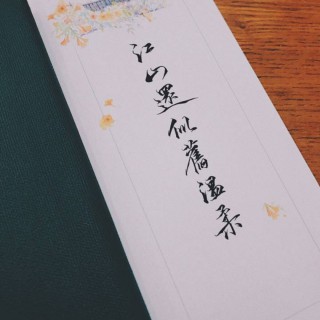 江山還似舊溫柔